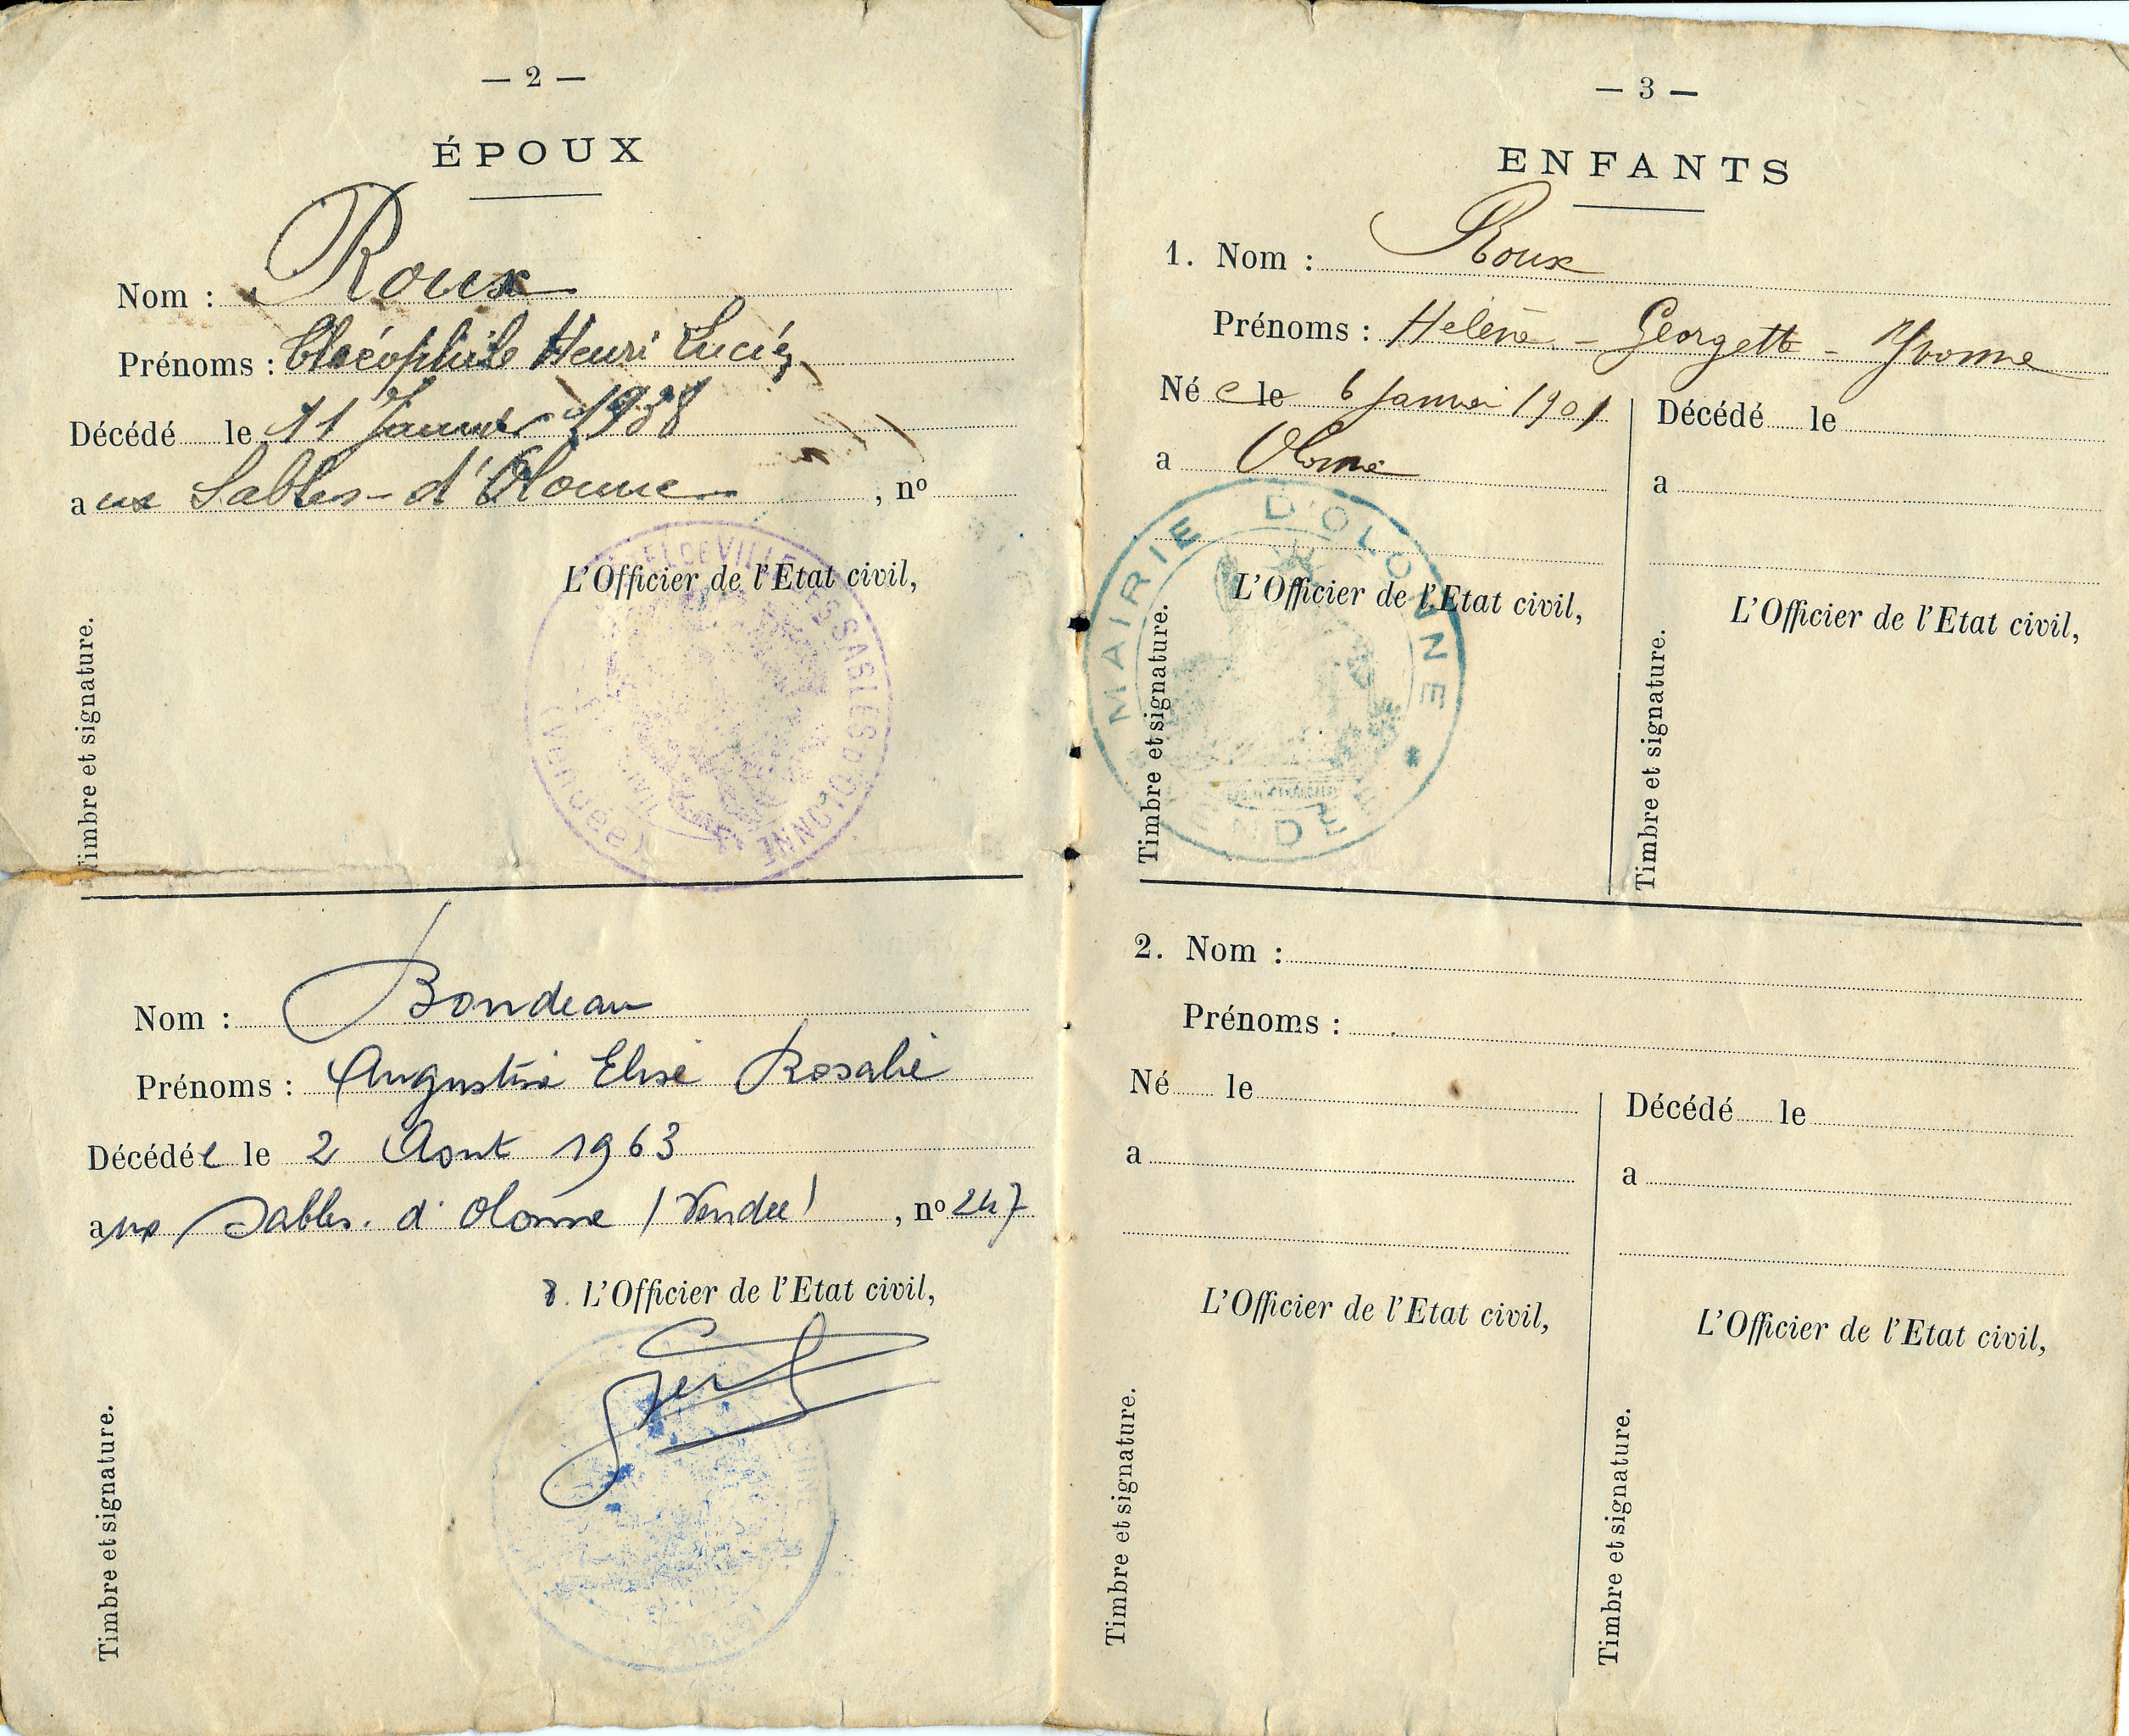 — 2 —
ÉPOUX
Nom : Roux
Prénoms : Cléophile Henri Lucien
Décédé le 11 Janvier 1938
aux Sables-d'Olonne, nº
L'Officier de l'Etat civil,
HOTEL DE VILLE DES SABLES D'OLONNE
(Vendée)
Timbre et signature.
Nom : Bondeau
Prénoms : Augustine Elise Rosalie
Décédée le 2 Aout 1963
aux Sables. d'Olonne (Vendée), nº 247
L'Officier de l'Etat civil,
Timbre et signature.
— 3 —
ENFANTS
1. Nom : Roux
Prénoms : Hélène - Georgette - Yvonne
Née le 6 Janvier 1901
a Olonne
L'Officier de l'Etat civil,
MAIRIE D'OLONNE
VENDÉE
Timbre et signature.
Décédé le
a
L'Officier de l'Etat civil,
Timbre et signature.
2. Nom :
Prénoms :
Né le
a
L'Officier de l'Etat civil,
Timbre et signature.
Décédé le
a
L'Officier de l'Etat civil,
Timbre et signature.